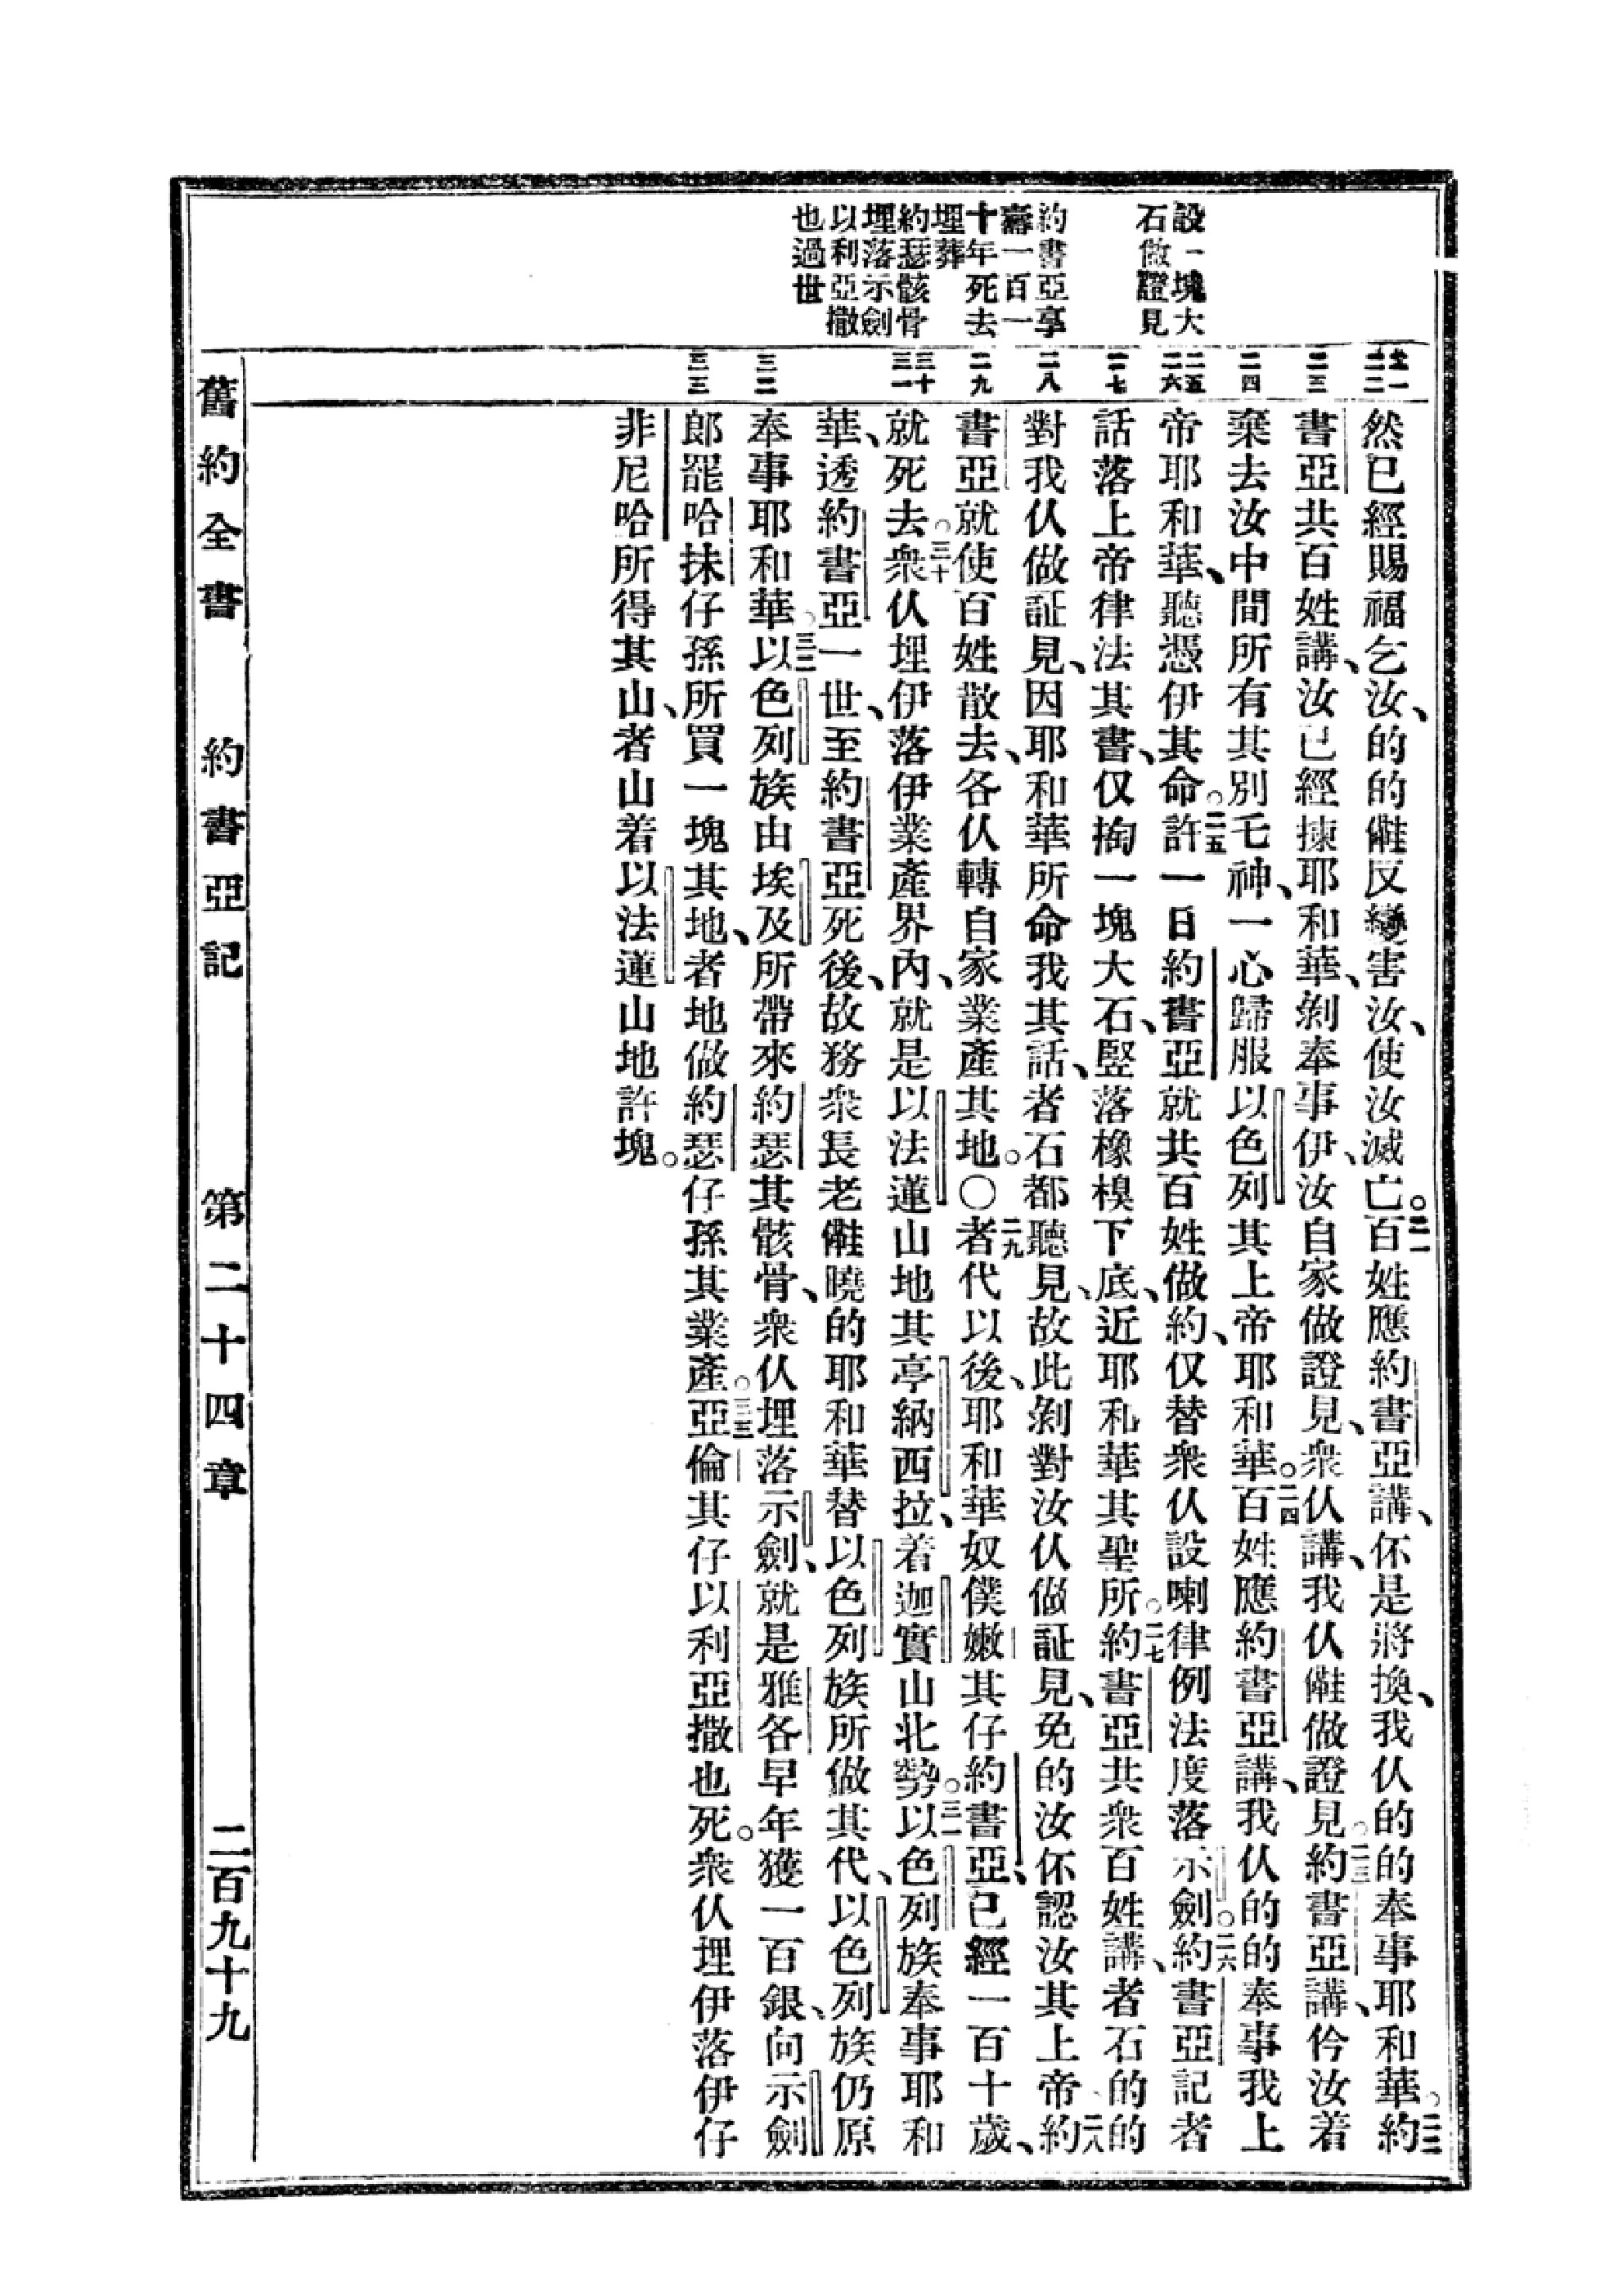 設一塊大
石做證見
約書亞享
壽一百一
十年死去
埋葬
約瑟骸骨
埋落示劍
以利亞撒
也過世
廿一
二二
二三
二四
二五
二六
二七
二八
二九
三十
三一
三二
三三
然已經賜福乞汝、的的𣍐反變害汝、使汝滅亡。二一百姓應約書亞講、伓是將換、我伙的的奉事耶和華。二二約
書亞共百姓講、汝已經揀耶和華、剝奉事伊、汝自家做證見、衆伙講、我伙𣍐做證見。二三約書亞講、仱汝着
棄去汝中間所有其別乇神、一心歸服以色列其上帝耶和華。二四百姓應約書亞講、我伙的的奉事我上
帝耶和華、聽憑伊其命。二五許一日約書亞就共百姓做約、仅替衆伙設喇律例法度落示劍。二六約書亞記者
話落上帝律法其書、仅掏一塊大石、竪落橡模下底、近耶和華其聖所。二七約書亞共衆百姓講、者石的的
對我伙做証見、因耶和華所命我其話、者石都聽見、故此剝對汝伙做証見、免的汝伓認汝其上帝、二八約
書亞就使百姓散去、各伙轉自家業產其地。〇二九者代以後、耶和華奴僕嫩其仔約書亞、已經一百十歲、
就死去。三十衆伙埋伊落伊業產界內、就是以法蓮山地其亭納西拉、着迦實山北勢。三一以色列族奉事耶和
華、透約書亞一世、至約書亞死後、故務衆長老𣍐曉的耶和華替以色列族所做其代、以色列族仍原
奉事耶和華。三二以色列族由埃及所帶來約瑟其骸骨、衆伙埋落示劍、就是雅各早年獲一百銀、向示劍
郎罷哈抹仔孫所買一塊其地、者地做約瑟仔孫其業產。三三亞倫其仔以利亞撒也死。衆伙埋伊落伊仔
非尼哈所得其山、者山着以法蓮山地許塊。
舊約全書　約書亞記　第二十四章　二百九十九